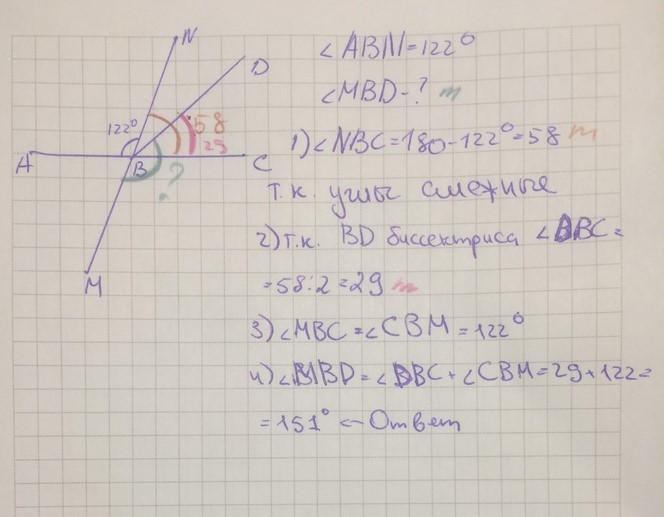 N
D
122°
58
29
A
B
C
?
M
∠ABN=122°
∠MBD-? m
1)∠NBC=180-122°=58 m
т.к. углы смежные
2)т.к. BD биссектриса ∠DBC=
=58:2=29 m
3)∠MBC=∠CBM=122°
4)∠MBD=∠DBC+∠CBM=29+122=
=151° ← Ответ